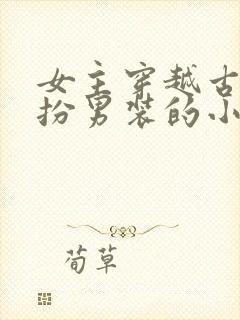 女主穿越古
扮男装的小
荀草